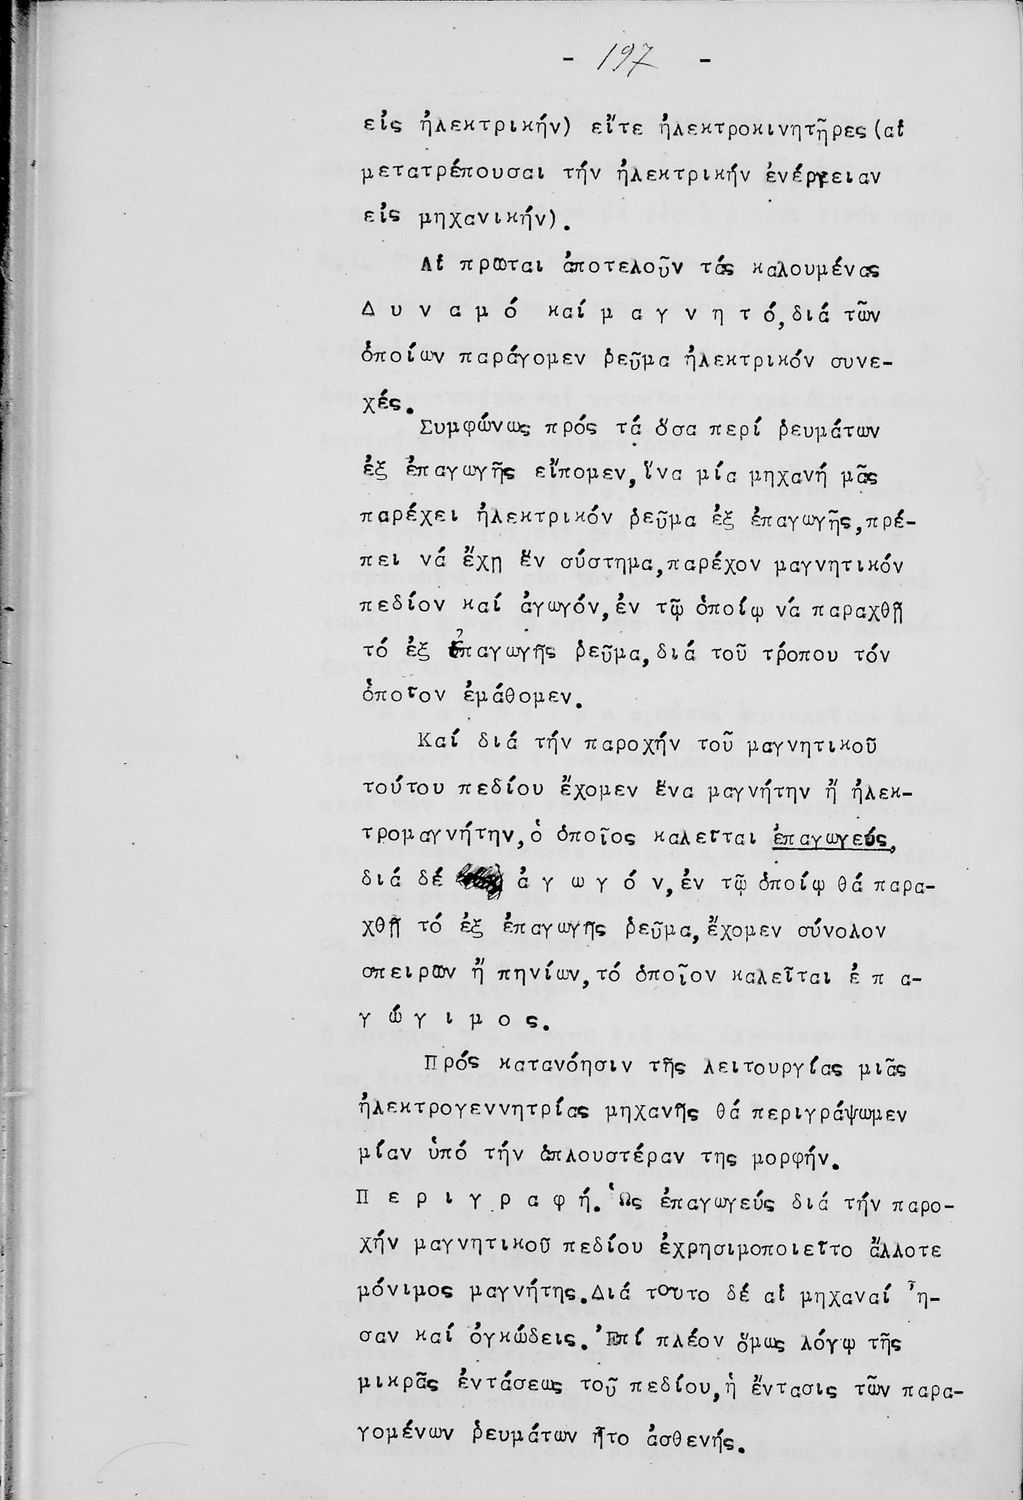 - 197 -
εἰς ἠλεκτρικήν) εἴτε ἠλεκτροκινητῆρες (αἱ
μετατρέπουσαι τήν ἠλεκτρικήν ἐνέργειαν
εἰς μηχανικήν).
Αἱ πρῶται ἀποτελοῦν τάς καλουμένας
Δ υ ν α μ ό καί μ α γ ν η τ ό, διά τῶν
ὁποίων παράγομεν ῥεῦμα ἠλεκτρικόν συνε-
χές.
Συμφώνως πρός τά ὅσα περί ῥευμάτων
ἐξ ἐπαγωγῆς εἴπομεν, ἵνα μία μηχανή μᾶς
παρέχει ἠλεκτρικόν ῥεῦμα ἐξ ἐπαγωγῆς, πρέ-
πει νά ἔχῃ ἕν σύστημα, παρέχον μαγνητικόν
πεδίον καί ἀγωγόν, ἐν τῷ ὁποίῳ νά παραχθῇ
τό ἐξ ἐπαγωγῆς ῥεῦμα, διά τοῦ τρόπου τόν
ὁποῖον ἐμάθομεν.
Καί διά τήν παροχήν τοῦ μαγνητικοῦ
τούτου πεδίου ἔχομεν ἕνα μαγνήτην ἤ ἠλεκ-
τρομαγνήτην, ὁ ὁποῖος καλεῖται ἐπαγωγεύς,
διά δέ ἀ γ ω γ ό ν, ἐν τῷ ὁποίῳ θά παρα-
χθῇ τό ἐξ ἐπαγωγῆς ῥεῦμα, ἔχομεν σύνολον
σπειρῶν ἤ πηνίων, τό ὁποῖον καλεῖται ἐ π α-
γ ώ γ ι μ ο ς.
Πρός κατανόησιν τῆς λειτουργίας μιᾶς
ἠλεκτρογεννητρίας μηχανῆς θά περιγράψωμεν
μίαν ὑπό τήν ἁπλουστέραν της μορφήν.
Π ε ρ ι γ ρ α φ ή. Ὡς ἐπαγωγεύς διά τήν παρο-
χήν μαγνητικοῦ πεδίου ἐχρησιμοποιεῖτο ἄλλοτε
μόνιμος μαγνήτης. Διά τοῦτο δέ αἱ μηχαναί ἦ-
σαν καί ὀγκώδεις. Ἐπί πλέον ὅμως λόγῳ τῆς
μικρᾶς ἐντάσεως τοῦ πεδίου, ἡ ἔντασις τῶν παρα-
γομένων ῥευμάτων ἦτο ἀσθενής.